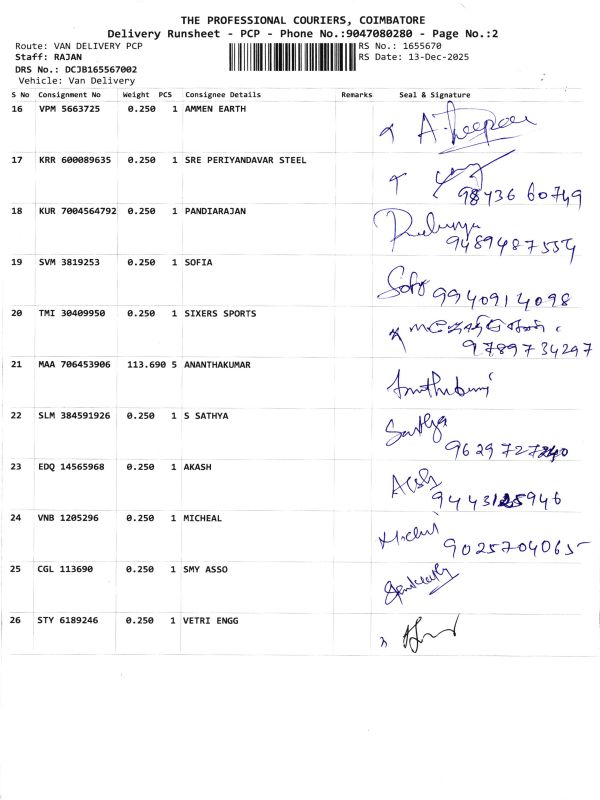 THE PROFESSIONAL COURIERS, COIMBATORE
Delivery Runsheet - PCP - Phone No.:9047080280 - Page No.:2
Route: VAN DELIVERY PCP RS No.: 1655670
Staff: RAJAN RS Date: 13-Dec-2025
DRS No.: DCJB165567002
Vehicle: Van Delivery
S No Consignment No Weight PCS Consignee Details Remarks Seal & Signature
16 VPM 5663725 0.250 1 AMMEN EARTH
17 KRR 600089635 0.250 1 SRE PERIYANDAVAR STEEL
98436 60749
18 KUR 7004564792 0.250 1 PANDIARAJAN
9489487554
19 SVM 3819253 0.250 1 SOFIA
9940914098
20 TMI 30409950 0.250 1 SIXERS SPORTS
9789734297
21 MAA 706453906 113.690 5 ANANTHAKUMAR
22 SLM 384591926 0.250 1 S SATHYA
Sathya
23 EDQ 14565968 0.250 1 AKASH
Akash
24 VNB 1205296 0.250 1 MICHEAL
9025704065
25 CGL 113690 0.250 1 SMY ASSO
26 STY 6189246 0.250 1 VETRI ENGG